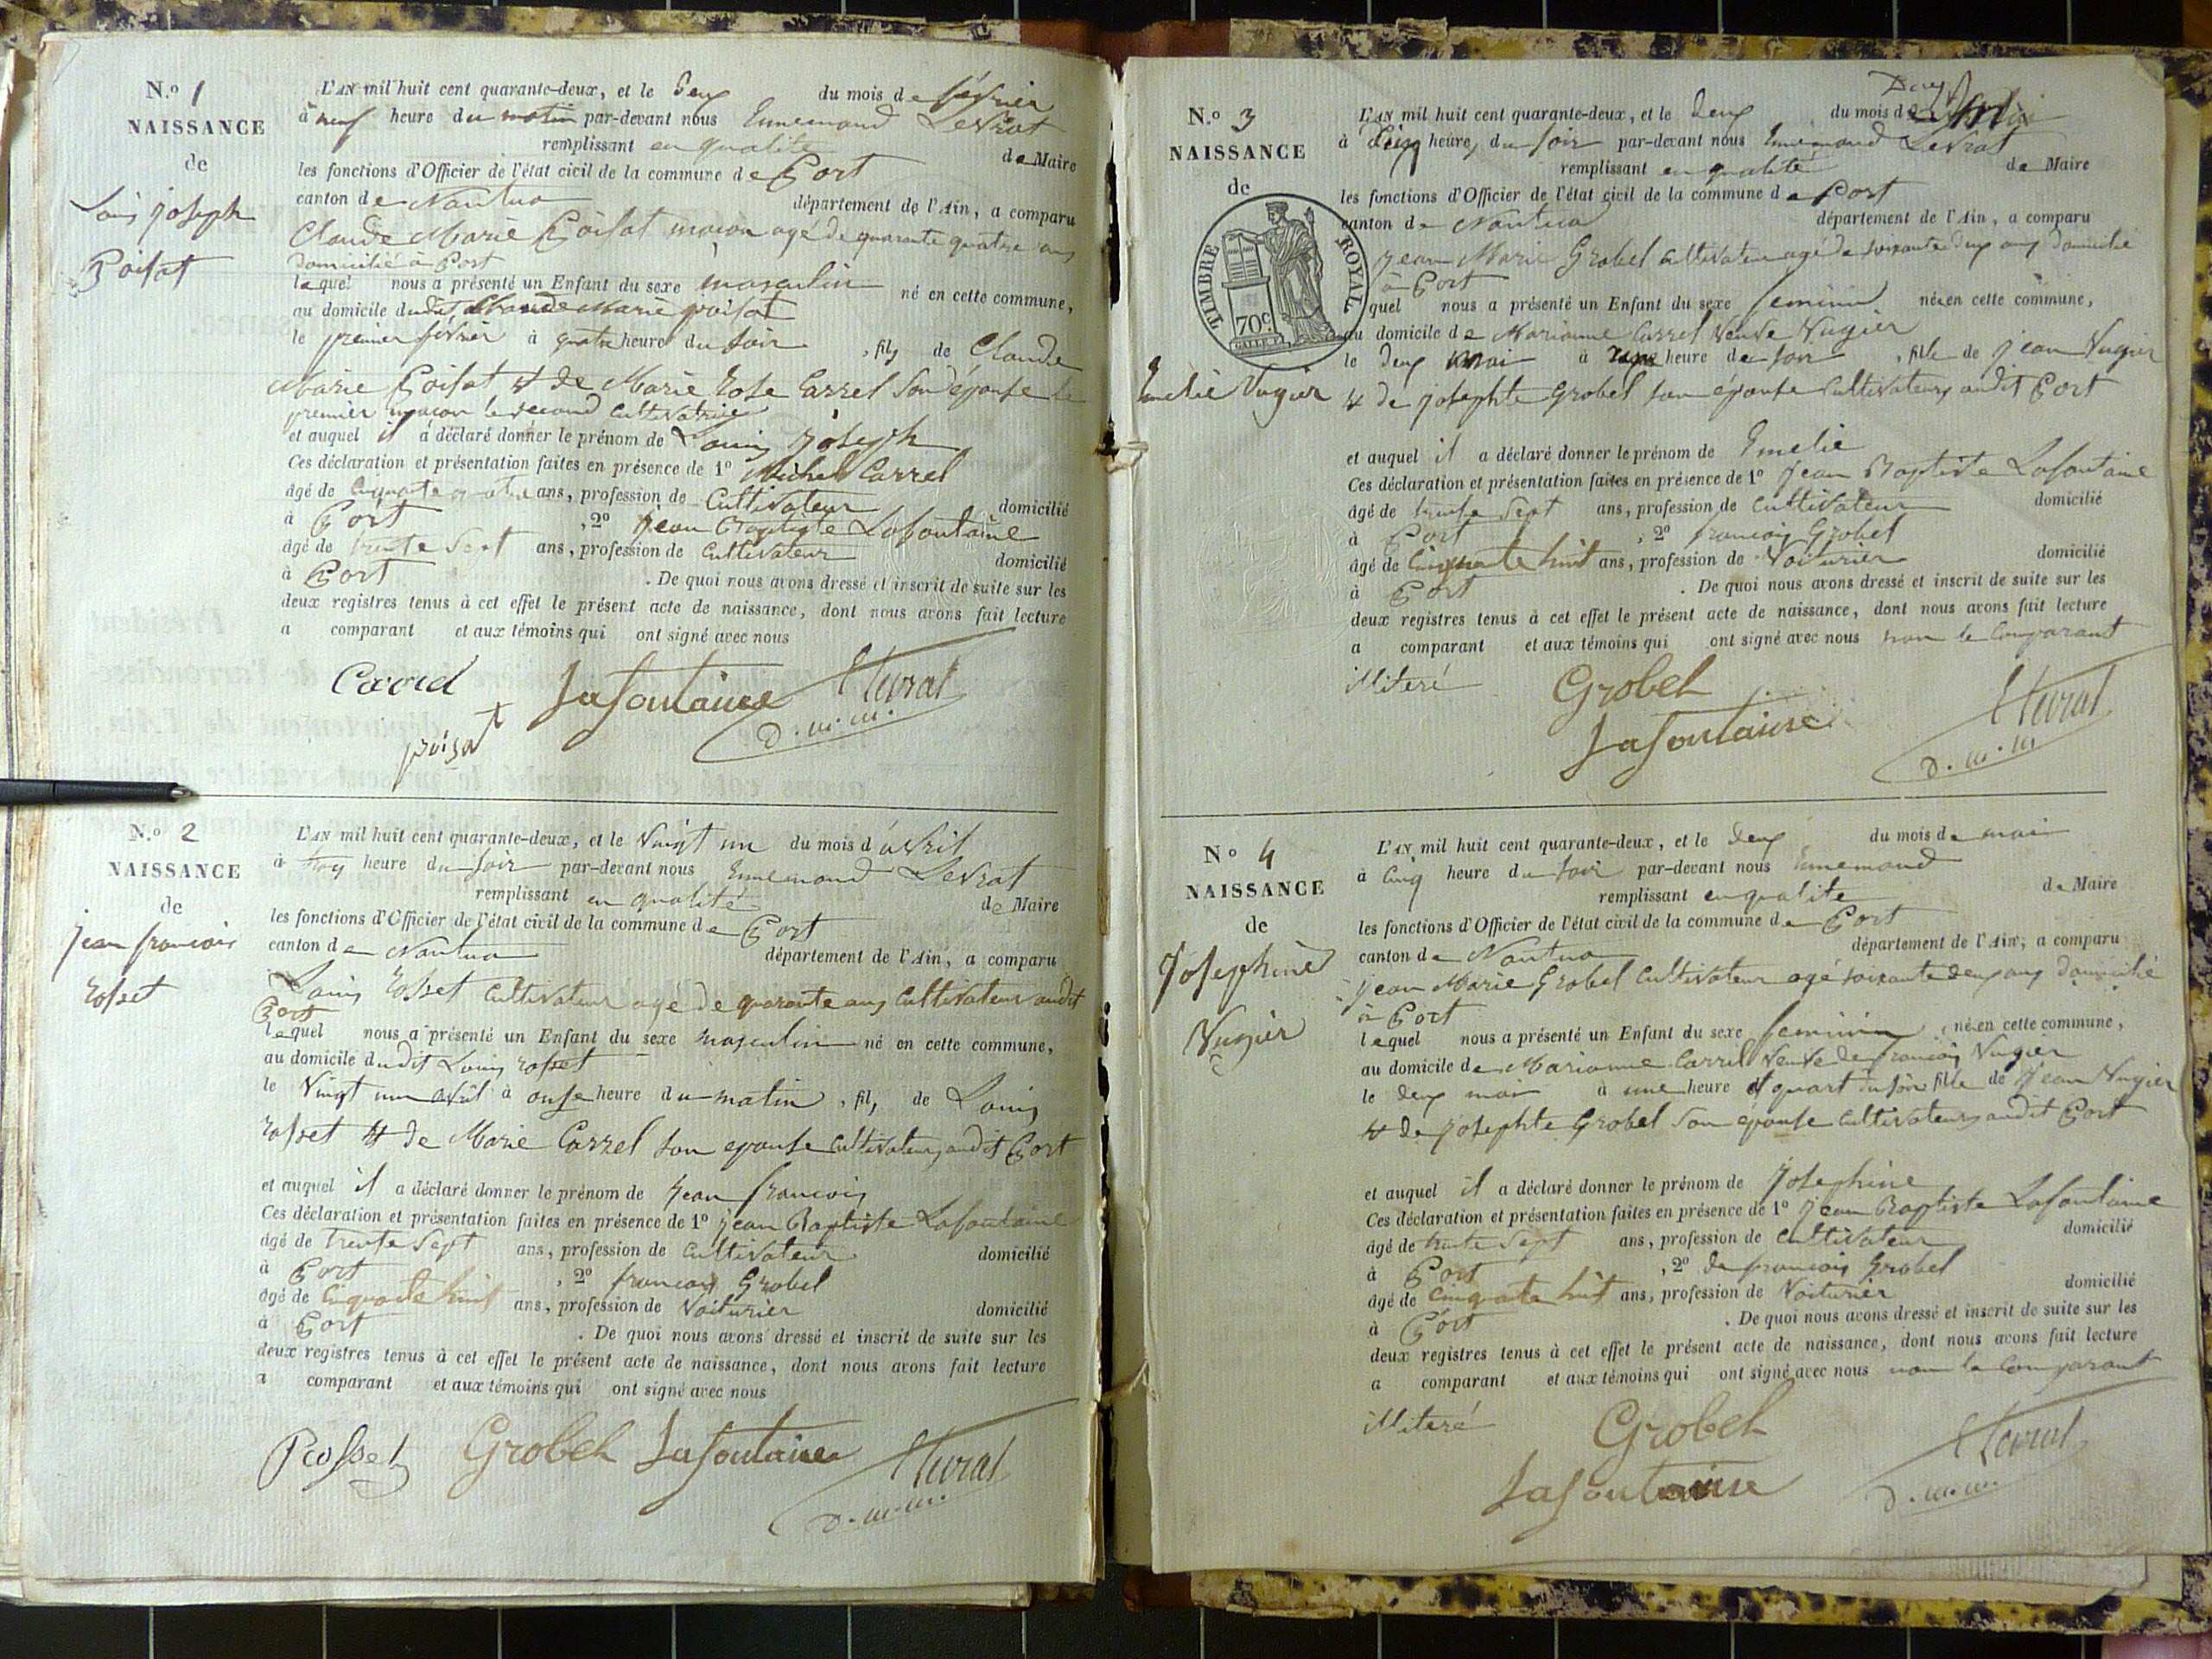 N.o 1
NAISSANCE
de
Louis Joseph
Poisat
L'AN mil huit cent quarante-deux, et le deux du mois de février
à neuf heure du matin par-devant nous Ennemond Levrat
remplissant en qualité de Maire
les fonctions d'Officier de l'état civil de la commune de Port
canton de Nantua département de l'Ain, a comparu
Claude Marie Poisat maçon agé de quarante quatre ans
domicilié à Port
lequel nous a présenté un Enfant du sexe masculin né en cette commune,
au domicile dudit Claude Marie poisat
le premier février à quatre heure du soir, fils de Claude
Marie Poisat et de Marie Rose Carrel son épouse le
premier maçon la second cultivatrice
et auquel il a déclaré donner le prénom de Louis Joseph
Ces déclaration et présentation faites en présence de 1° Michel Carrel
âgé de cinquante quatre ans, profession de Cultivateur domicilié
à Port, 2° jean Baptiste Lafontaine
âgé de trente sept ans, profession de cultivateur domicilié
à Port. De quoi nous avons dressé et inscrit de suite sur les
deux registres tenus à cet effet le présent acte de naissance, dont nous avons fait lecture
a comparant et aux témoins qui ont signé avec nous
Carrel Lafontaine Levrat
poisat d. m. m.
N.o 2
NAISSANCE
de
jean francois
rosset
L'AN mil huit cent quarante-deux, et le Vingt un du mois d'avril
à trois heure du soir par-devant nous Ennemond Levrat
remplissant en qualité de Maire
les fonctions d'Officier de l'état civil de la commune de Port
canton de Nantua département de l'Ain, a comparu
Louis rosset cultivateur agé de quarante ans cultivateur audit
Port
lequel nous a présenté un Enfant du sexe masculin né en cette commune,
au domicile dudit Louis rosset
le Vingt un avril à onse heure du matin, fils de Louis
rosset et de Marie Carrel son epouse cultivateurs audit Port
et auquel il a déclaré donner le prénom de jean francois
Ces déclaration et présentation faites en présence de 1° jean Baptiste Lafontaine
âgé de trente sept ans, profession de cultivateur domicilié
à Port, 2° francois Grobel
âgé de cinquante huit ans, profession de Voiturier domicilié
à Port. De quoi nous avons dressé et inscrit de suite sur les
deux registres tenus à cet effet le présent acte de naissance, dont nous avons fait lecture
a comparant et aux témoins qui ont signé avec nous
Rosset Grobel Lafontaine Levrat
d. m. m.
N.o 3
NAISSANCE
de
TIMBRE ROYAL
70c
Emelie Vugier
L'AN mil huit cent quarante-deux, et le deux du mois de
à cinq heures du soir par-devant nous Ennemond Levrat
remplissant en qualité de Maire
les fonctions d'Officier de l'état civil de la commune de Port
canton de Nantua département de l'Ain, a comparu
jean Marie Grobel cultivateur agé de soixante deux ans domicilié
à Port
quel nous a présenté un Enfant du sexe feminin née en cette commune,
au domicile de Marianne Carrel Veuve Vugier
le deux mai à une heure de soir, fille de jean Vugier
et de josephte Grobel son épouse cultivateurs audit Port
et auquel il a déclaré donner le prénom de Emelie
Ces déclaration et présentation faites en présence de 1° jean Baptiste Lafontaine
âgé de trente sept ans, profession de cultivateur domicilié
à Port, 2° francois Grobel
âgé de cinquante huit ans, profession de Voiturier domicilié
à Port. De quoi nous avons dressé et inscrit de suite sur les
deux registres tenus à cet effet le présent acte de naissance, dont nous avons fait lecture
a comparant et aux témoins qui ont signé avec nous non le comparant
illiteré Grobel Levrat
Lafontaine d. m. m.
N° 4
NAISSANCE
de
Josephine
Vugier
L'AN mil huit cent quarante-deux, et le deux du mois de mai
à cinq heure du soir par-devant nous Ennemond
remplissant en qualité de Maire
les fonctions d'Officier de l'état civil de la commune de Port
canton de Nantua département de l'Ain, a comparu
jean Marie Grobel cultivateur agé soixante deux ans domicilié
à Port
lequel nous a présenté un Enfant du sexe feminin, née en cette commune,
au domicile de Marianne Carrel Veuve de francois Vugier
le deux mai à une heure et quart du soir fille de jean Vugier
et de josephte Grobel son épouse cultivateurs audit Port
et auquel il a déclaré donner le prénom de Josephine
Ces déclaration et présentation faites en présence de 1° jean Baptiste Lafontaine
âgé de trente sept ans, profession de cultivateur domicilié
à Port, 2° de francois Grobel
âgé de cinquante huit ans, profession de Voiturier domicilié
à Port. De quoi nous avons dressé et inscrit de suite sur les
deux registres tenus à cet effet le présent acte de naissance, dont nous avons fait lecture
a comparant et aux témoins qui ont signé avec nous non le comparant
illiteré Grobel Levrat
Lafontaine d. m. m.